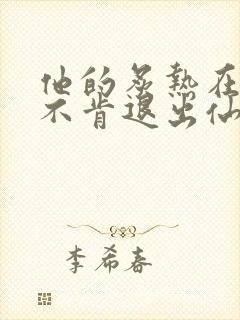 他的炙热在
不肯退出仙
李希春